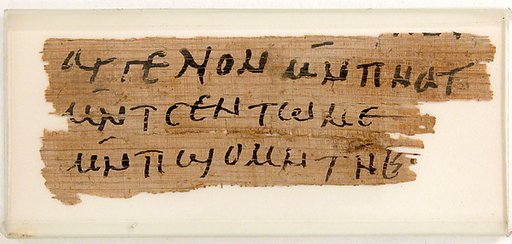 ⲁⲩⲅⲉⲙⲟⲛ ⲙ̄ⲛⲡⲏⲁⲧ
ⲙ̄ⲛⲧⲥⲉⲛⲧⲱⲙⲉ
ⲙ̄ⲛⲡϣⲟⲙⲛⲧⲏⲉ